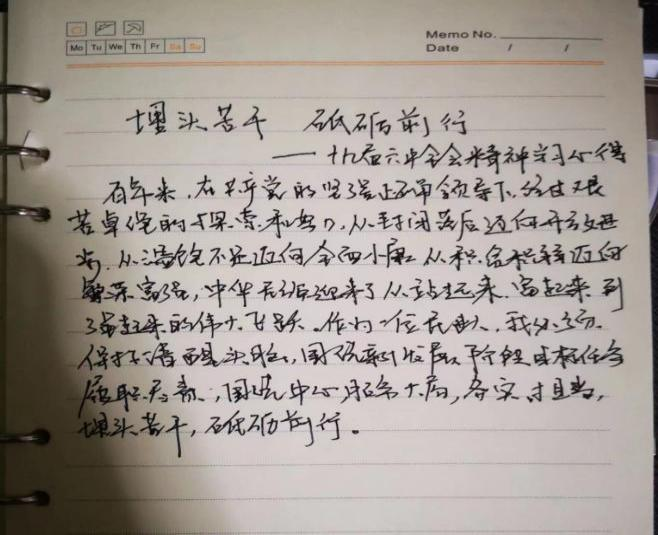 Memo No.
Mo Tu We Th Fr Sa Su
Date / /
埋头苦干 砥砺前行
——十九届六中全会精神学习心得
百年来,在共产党的坚强正确领导下,经过艰
苦卓绝的探索和努力,从封闭落后迈向开放进
步,从温饱不足迈向全面小康,从积贫积弱迈向
繁荣富强,中华民族迎来了从站起来、富起来到
强起来的伟大飞跃。作为一位民警,我必须
保持清醒头脑,围绕新发展阶段目标任务
履职尽责,围绕中心,服务大局,务实担当,
埋头苦干,砥砺前行。